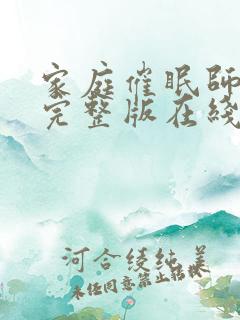 家庭催眠師
完整版在綫
河合綾純美
未经同意禁止转载